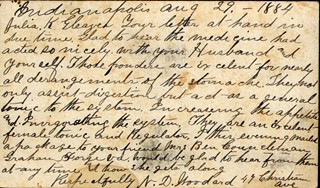 Indianapolis Aug 29 - 1884
Julia, K Your letter at hand in
due time, Glad to hear the medicine had
acted so nicely, with your Husband &d
yourself. Those powders are Excelent for nearly
all derangements of the stomache, They not
only assist digestion but act as a general
tonic to the system, Encreasing the appetite
&d Envigorating the system, They are an Excelent
female tonic and Regulator, I this evening mailed
a package to your friend Mrs Ben
Graham Georgie &d, would be glad to hear from them
at any time, & how She gets along
Respectfully N. D. Woodard 49 Christian ave